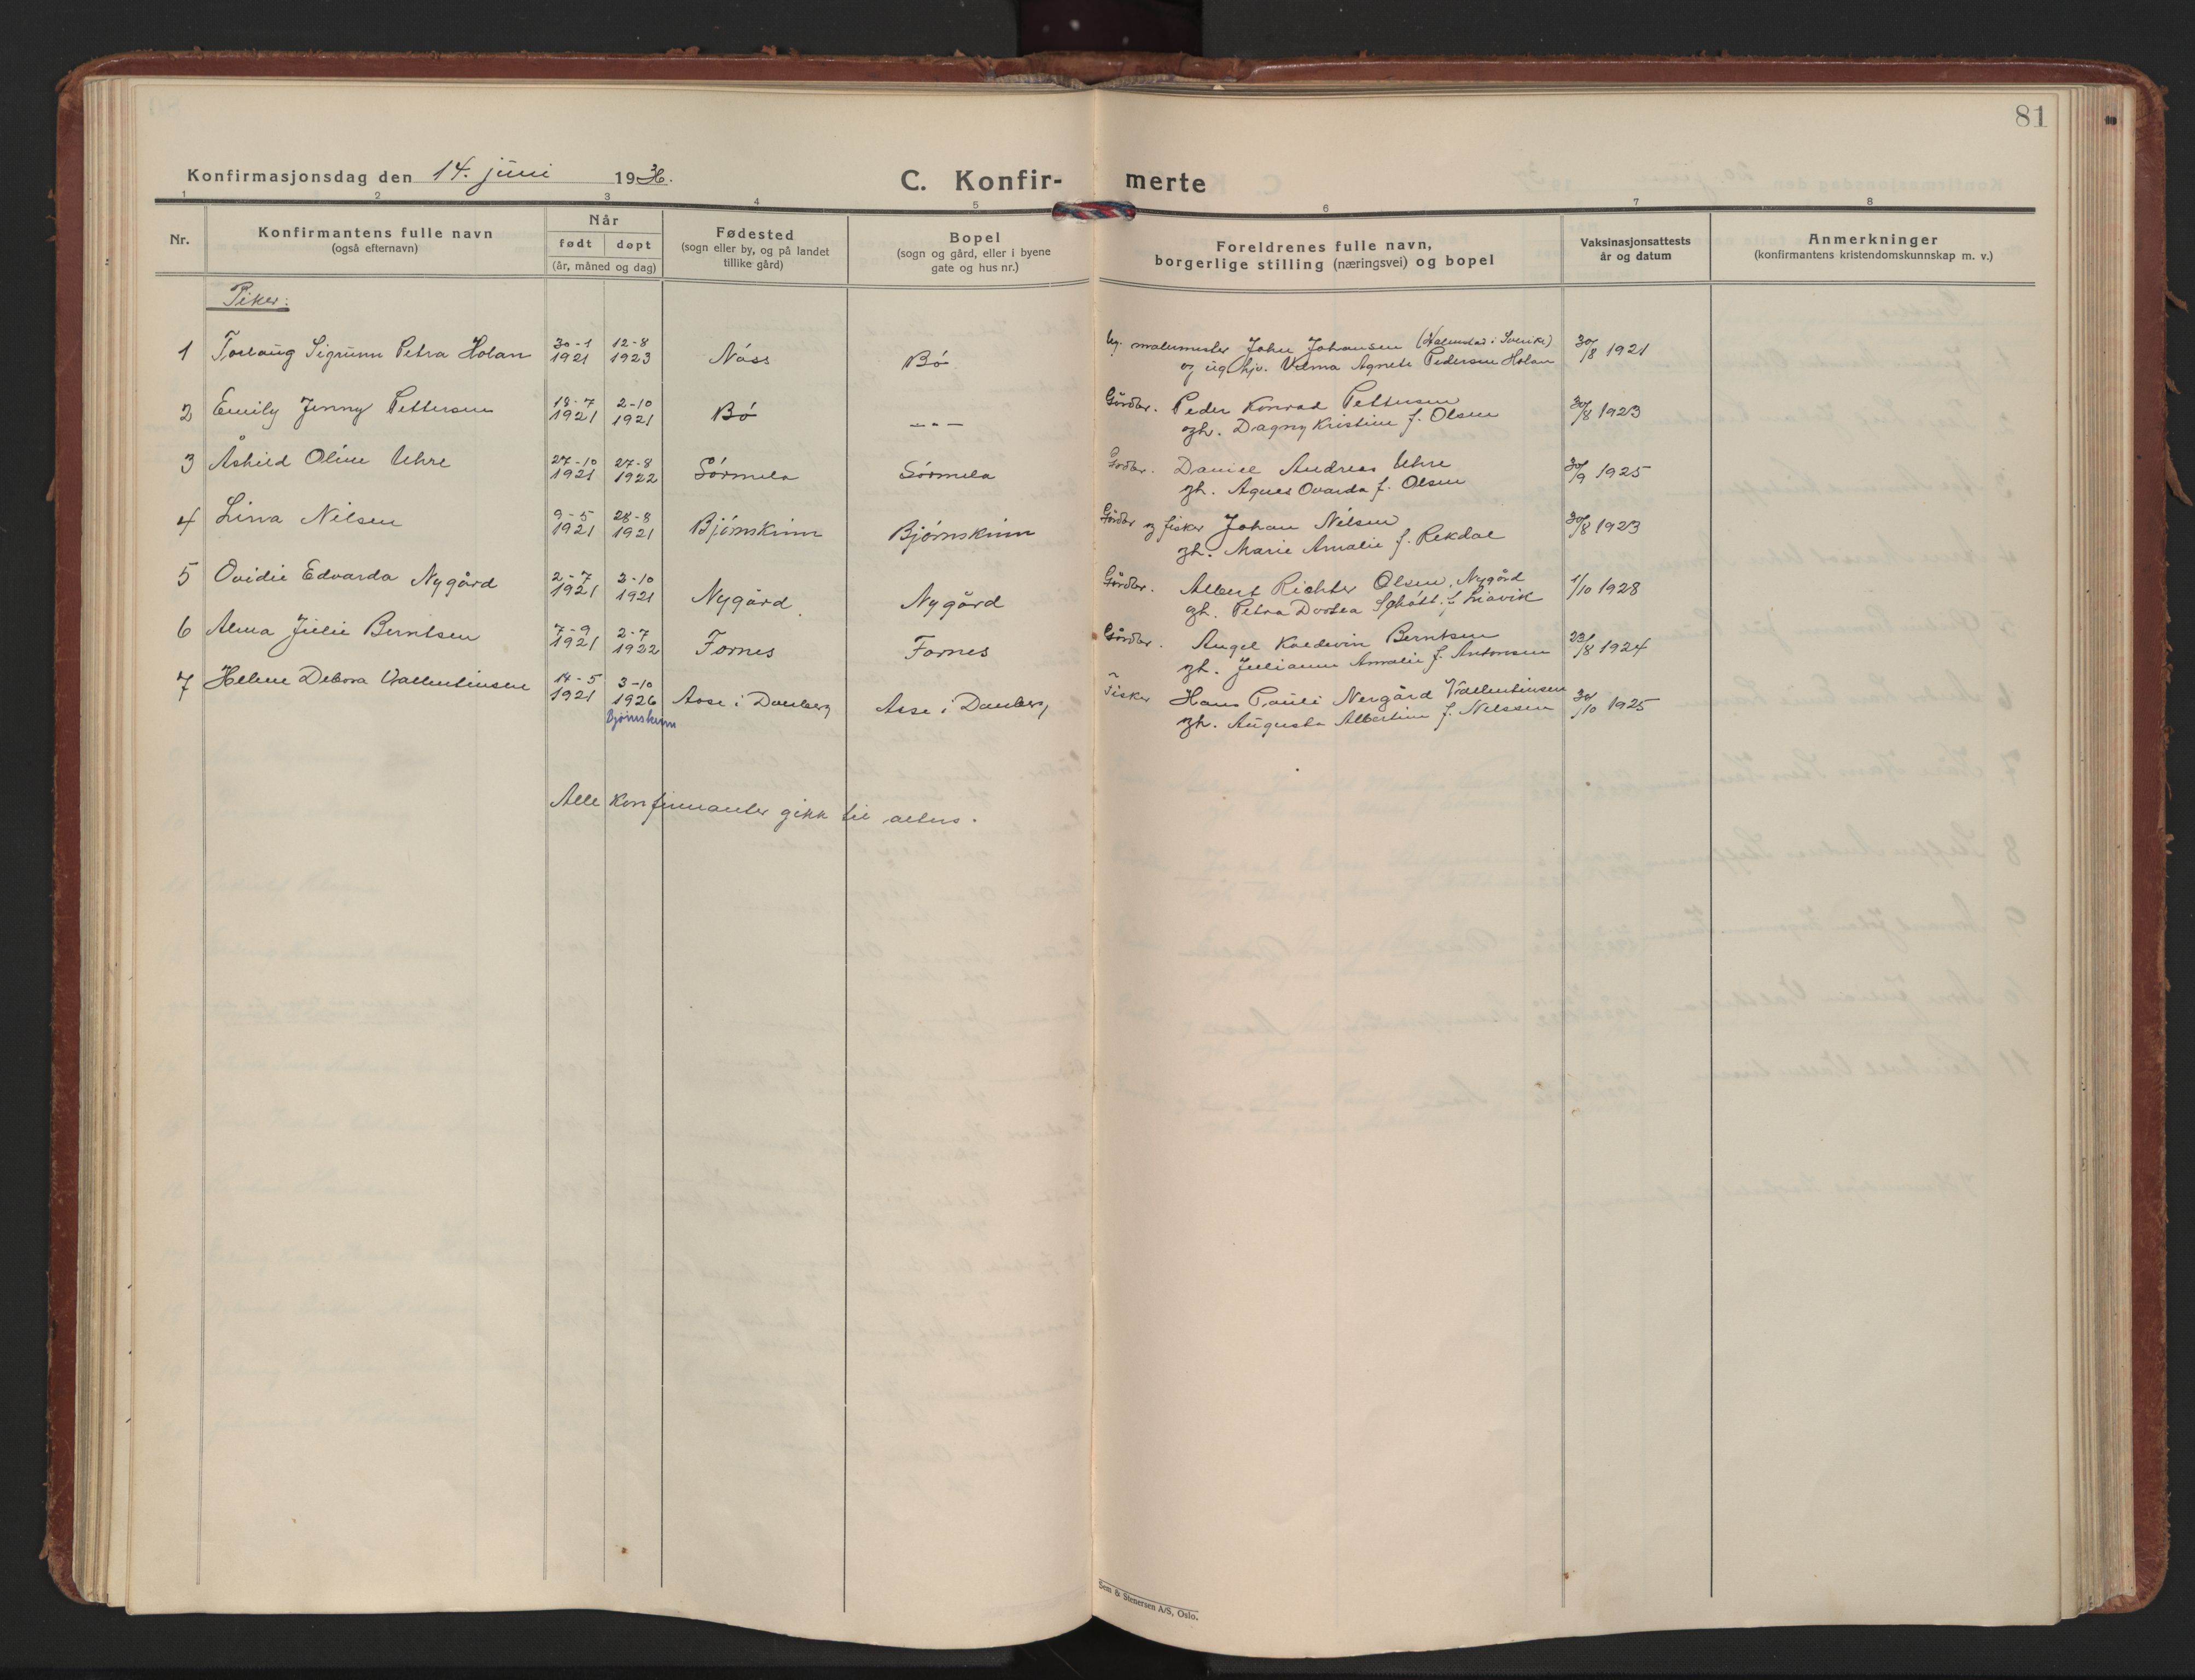 81
Konfirmasjonsdag den 14. juni 1936.
C. Konfir- merte
1 2 3 4 5 6 7 8
Nr.
Konfirmantens fulle navn
(også efternavn)
Når
født døpt
(år, måned og dag)
Fødested
(sogn eller by, og på landet
tillike gård)
Bopel
(sogn og gård, eller i byene
gate og hus nr.)
Foreldrenes fulle navn,
borgerlige stilling (næringsvei) og bopel
Vaksinasjonsattests
år og datum
Anmerkninger
(konfirmantens kristendomskunnskap m. v.)
Piker:
1 Torlaug Sigrunn Petra Holan 30-1 1921 12-8 1923 Näss Bö
ug. malermester John Johansen (Halmstad i Sverike)
og ug. hjv. Verna Agnete Pedersen Holan
30/8 1921
2 Emily Jenny Pettersen 18-7 1921 2-10 1921 Bö -"-
Gårdbr. Peder Konrad Pettersen
gh. Dagny Kristine f. Olsen
30/8 1923
3 Åshild Oline Uhre 27-10 1921 27-8 1922 Sörmela Sörmela
Gårdbr. Daniel Andreas Uhre
gh. Agnes Ovarda f. Olsen
30/9 1925
4 Lina Nilsen 9-5 1921 28-8 1921 Bjørnskinn Bjørnskinn
Gårdbr og fisker Johan Nilsen
gh. Marie Amalie f. Rekdal
30/8 1923
5 Ovidie Edvarda Nygård 2-7 1921 2-10 1921 Nygård Nygård
Gårdbr. Albert Richter Olsen, Nygård
gh. Petra Dortea Schött f. Liavik
1/10 1928
6 Alma Julie Berntsen 7-9 1921 2-7 1922 Fornes Fornes
Gårdbr. Angel Koldevin Berntsen
gh. Julianne Amalie f. Antonsen
23/8 1924
7 Helene Debora Vallentinsen 14-5 1921 3-10 1926 Åse i Dverberg Åse i Dverberg
Bjørnskinn
Fisker Hans Pauli Nergård Vallentinsen
gh. Augusta Albertine f. Nelssen
30/10 1925
Alle konfirmanter gikk til alters.
Sem & Stenersen A/S, Oslo.